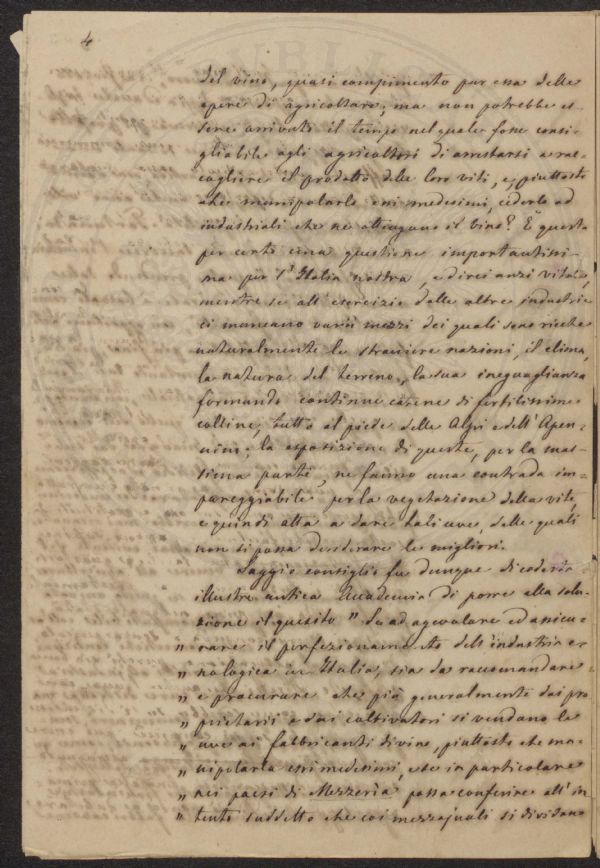 4
del vino, quasi compimento pur essa delle
opere di agricoltore; ma non potrebbe es-
sere arrivato il tempo nel quale fosse consi-
gliabile agli agricoltori di arrestarsi a rac-
cogliere il prodotto delle loro viti, e piuttosto
che manipolarlo essi medesimi, cederlo ad
industriali che ne ottengano il vino? È questa
per certo una questione importantissi-
ma per l'Italia nostra, e direi anzi vitale,
mentre se all'esercizio delle altre industrie
ci mancano varii mezzi dei quali sono ricche
naturalmente le straniere nazioni, il clima,
la natura del terreno, la sua ineguaglianza
formando continue catene di fertilissime
colline, tutto al piede delle Alpi e dell'Apen-
nino; la esposizione di queste, per la mas-
sima parte, ne fanno una contrada im-
pareggiabile per la vegetazione della vite,
e quindi atta a dare tali uve, delle quali
non si possa desiderare le migliori.
Saggio consiglio fu dunque di codesta
illustre antica Accademia di porre alla solu-
zione il quesito " Se ad agevolare ed assicu-
" rare il perfezionamento dell'industria e-
" nologica in Italia, sia da raccomandare
" e procurare che più generalmente dai pro
" prietarii e dai coltivatori si vendano le
" uve ai fabbricanti di vino, piuttosto che ma-
" nipolarla essi medesimi, e se in particolare
" nei paesi di Mezzeria possa conferire all'in
" tento suddetto che coi mezzajuoli si dividano